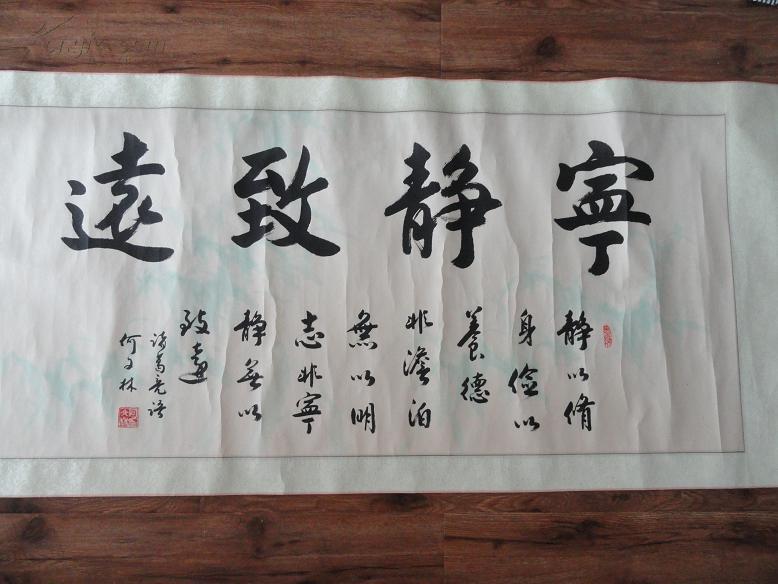 寧靜致遠
靜以脩
身儉以
養德
非澹泊
無以明
志非寧
靜無以
致遠
諸葛亮語
何文林